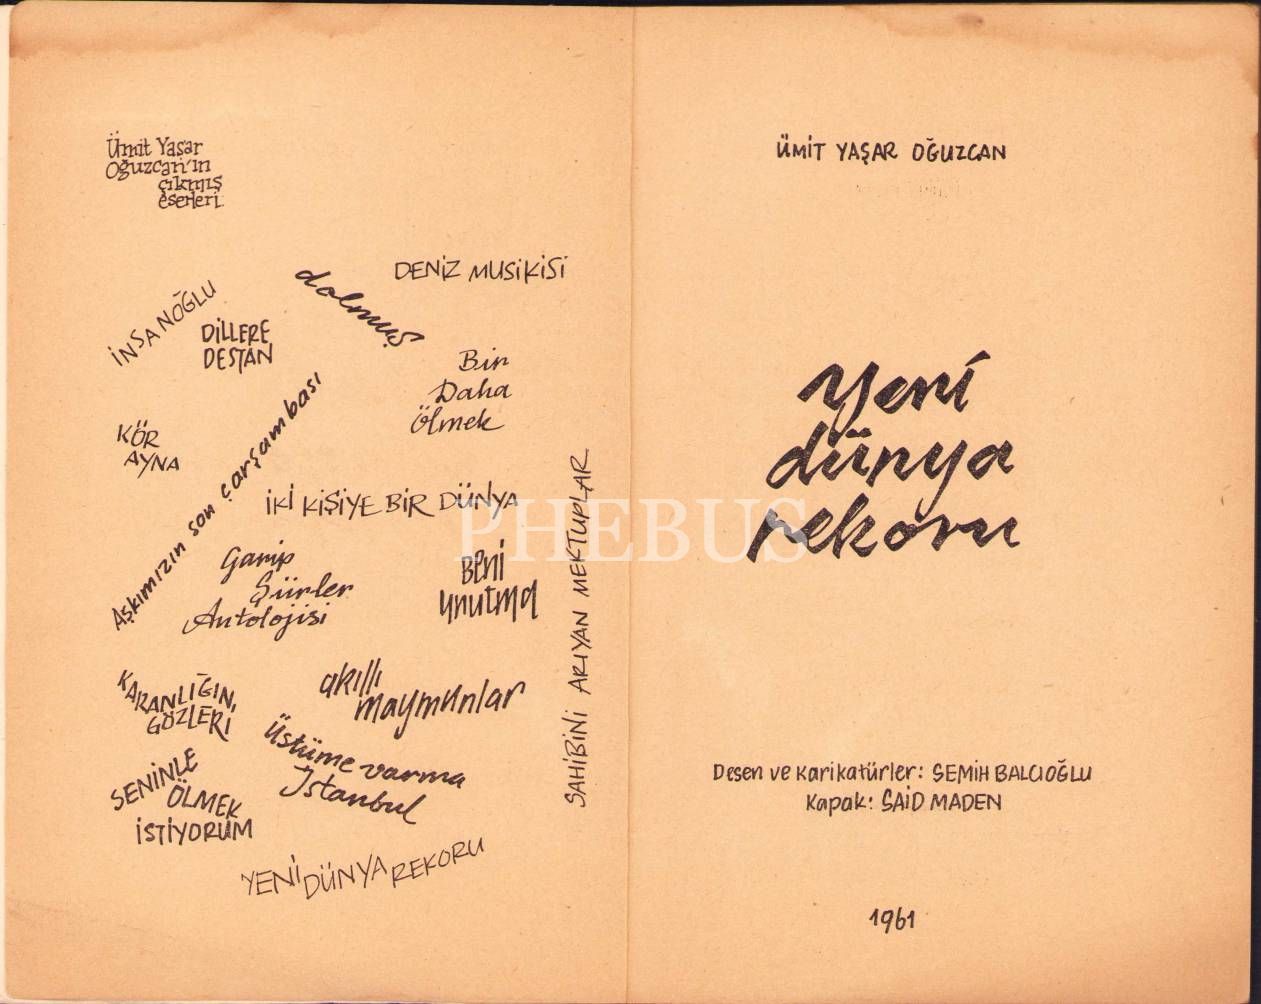 Ümit Yaşar
Oğuzcan'ın
çıkmış
eserleri
DENİZ MUSİKİSİ
dolmuş
İNSANOĞLU
DİLLERE
DESTAN
Bir
Daha
Ölmek
KÖR
AYNA
Aşkımızın son çarşambası
İKİ KİŞİYE BİR DÜNYA
Garip
Şiirler
Antolojisi
BENİ
UNUTMA
SAHİBİNİ ARIYAN MEKTUPLAR
KARANLIĞIN
GÖZLERİ
akıllı
maymunlar
Üstüme varma
İstanbul
SENİNLE
ÖLMEK
İSTİYORUM
YENİ DÜNYA REKORU
PHEBUS
ÜMİT YAŞAR OĞUZCAN
yeni
dünya
rekoru
Desen ve Karikatürler: SEMİH BALCIOĞLU
Kapak: SAİD MADEN
1961